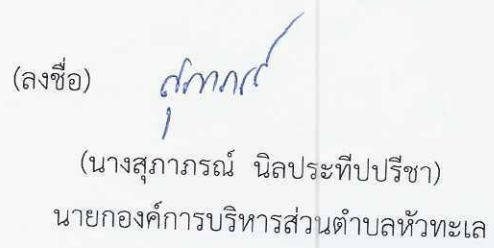 (ลงชื่อ) สุภาภรณ์
(นางสุภาภรณ์ นิลประทีปปรีชา)
นายกองค์การบริหารส่วนตำบลหัวทะเล